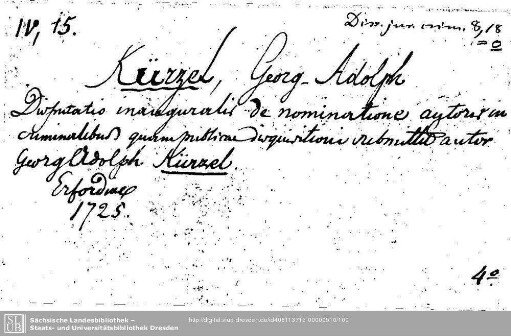 IV, 15.
Diss. jur. crim. 8, 18
= 0
Kürzel, Georg Adolph
Disputatio inauguralis de nominatione autoris in
criminalibus quam publicae disquisitioni submittit autor
Georg Adolph Kürzel
Erfordiae
1725.
4°
SLUB
Sächsische Landesbibliothek –
Staats- und Universitätsbibliothek Dresden